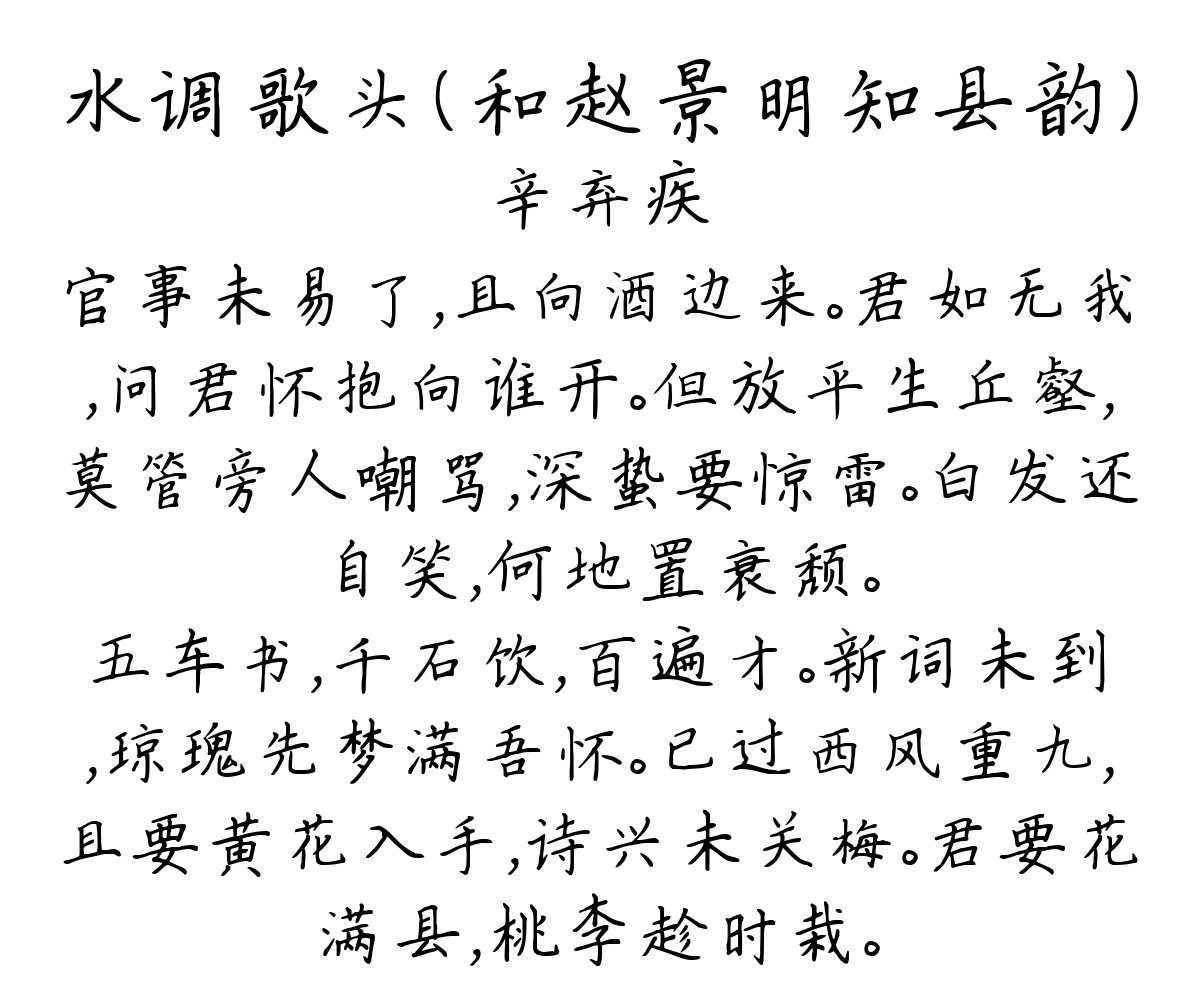 水调歌头(和赵景明知县韵)
辛弃疾
官事未易了,且向酒边来。君如无我
,问君怀抱向谁开。但放平生丘壑,
莫管旁人嘲骂,深蛰要惊雷。白发还
自笑,何地置衰颓。
五车书,千石饮,百遍才。新词未到
,琼瑰先梦满吾怀。已过西风重九,
且要黄花入手,诗兴未关梅。君要花
满县,桃李趁时栽。